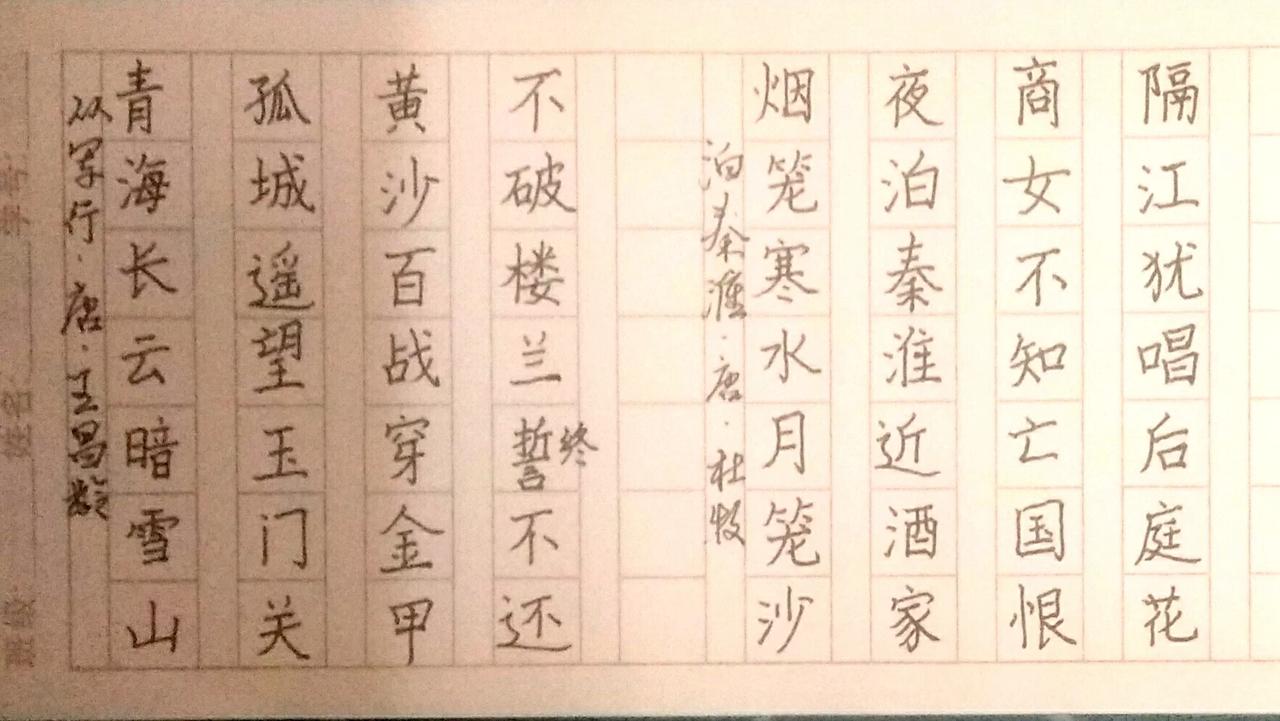 从军行·唐·王昌龄
青海长云暗雪山
孤城遥望玉门关
黄沙百战穿金甲
不破楼兰誓不还
终
泊秦淮·唐·杜牧
烟笼寒水月笼沙
夜泊秦淮近酒家
商女不知亡国恨
隔江犹唱后庭花
学号
姓名
班级